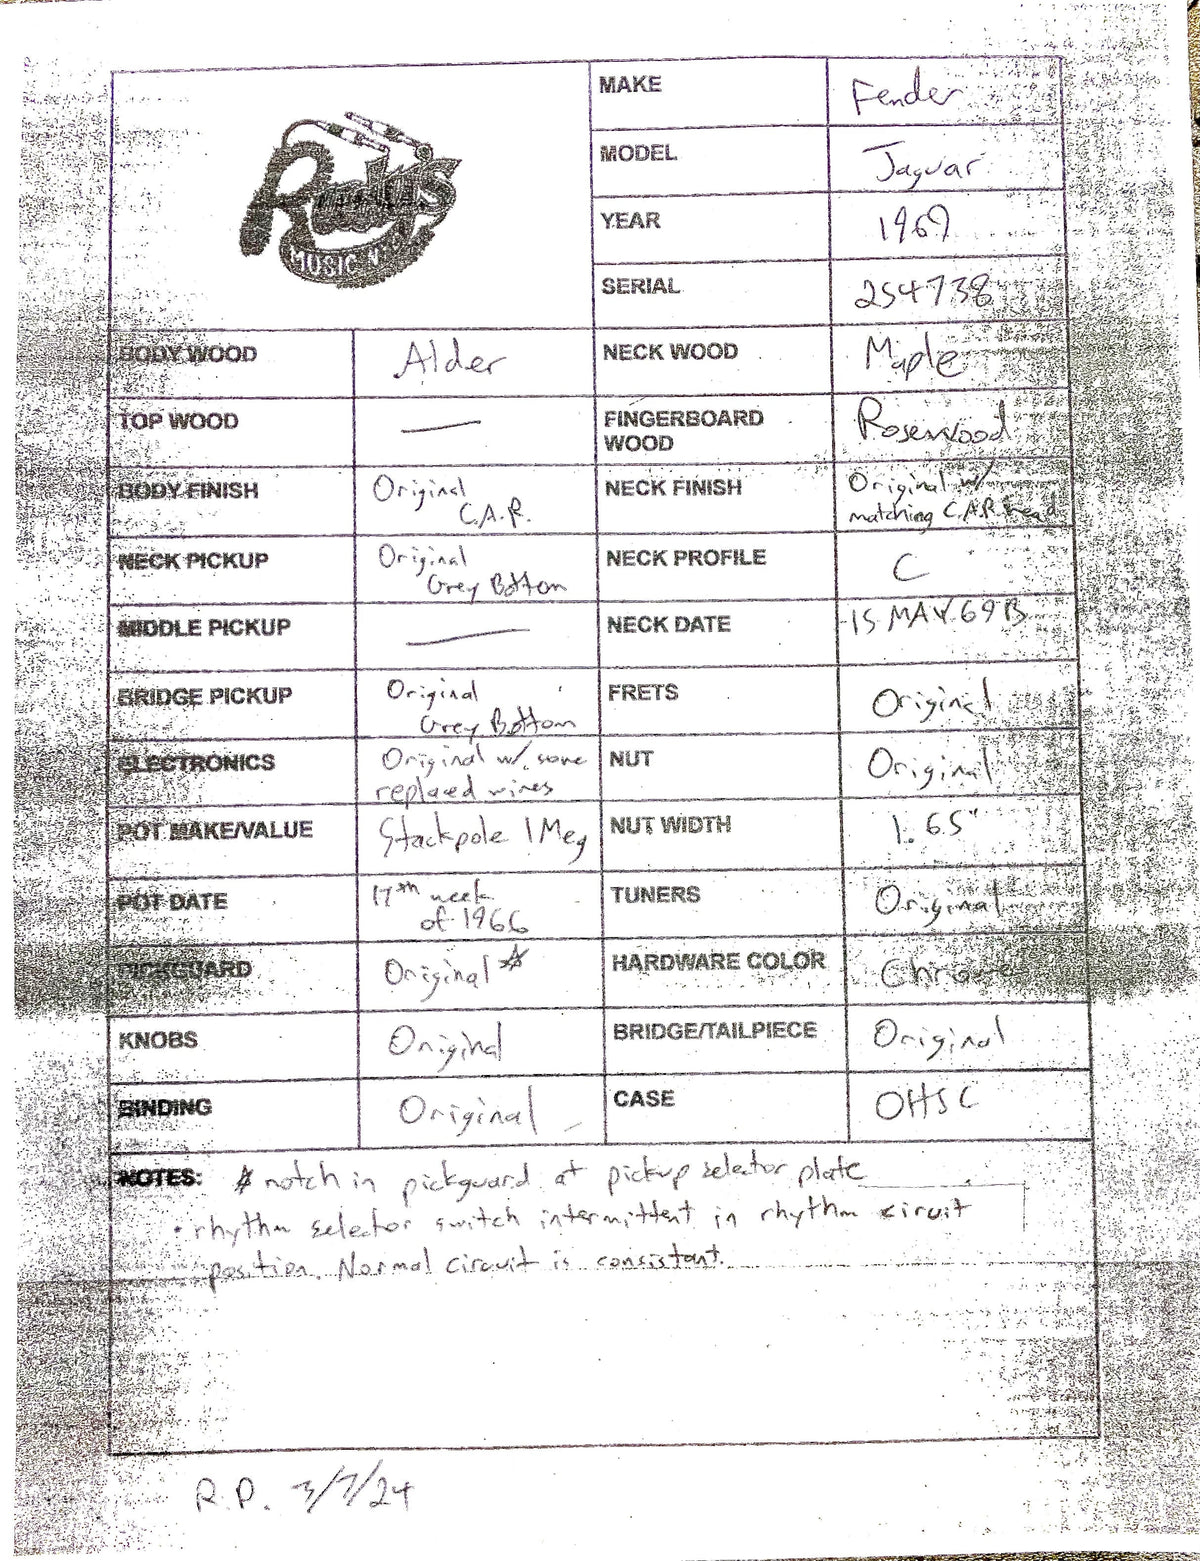 Rudy's
MUSIC
MAKE Fender
MODEL Jaguar
YEAR 1969
SERIAL 254738
BODY WOOD Alder NECK WOOD Maple
TOP WOOD — FINGERBOARD
WOOD Rosewood
BODY FINISH Original
C.A.R. NECK FINISH Original w/
matching C.A.R. head
NECK PICKUP Original
Grey Bottom NECK PROFILE C
MIDDLE PICKUP — NECK DATE 15 MAY 69 B
BRIDGE PICKUP Original
Grey Bottom FRETS Original
ELECTRONICS Original w/ some
replaced wires NUT Original
POT MAKE/VALUE Stackpole 1Meg NUT WIDTH 1.65"
POT DATE 17th week
of 1966 TUNERS Original
PICKGUARD Original * HARDWARE COLOR Chrome
KNOBS Original BRIDGE/TAILPIECE Original
BINDING Original CASE OHSC
NOTES: * notch in pickguard at pickup selector plate
• rhythm selector switch intermittent in rhythm circuit
position. Normal circuit is consistant.
R.P. 3/7/24